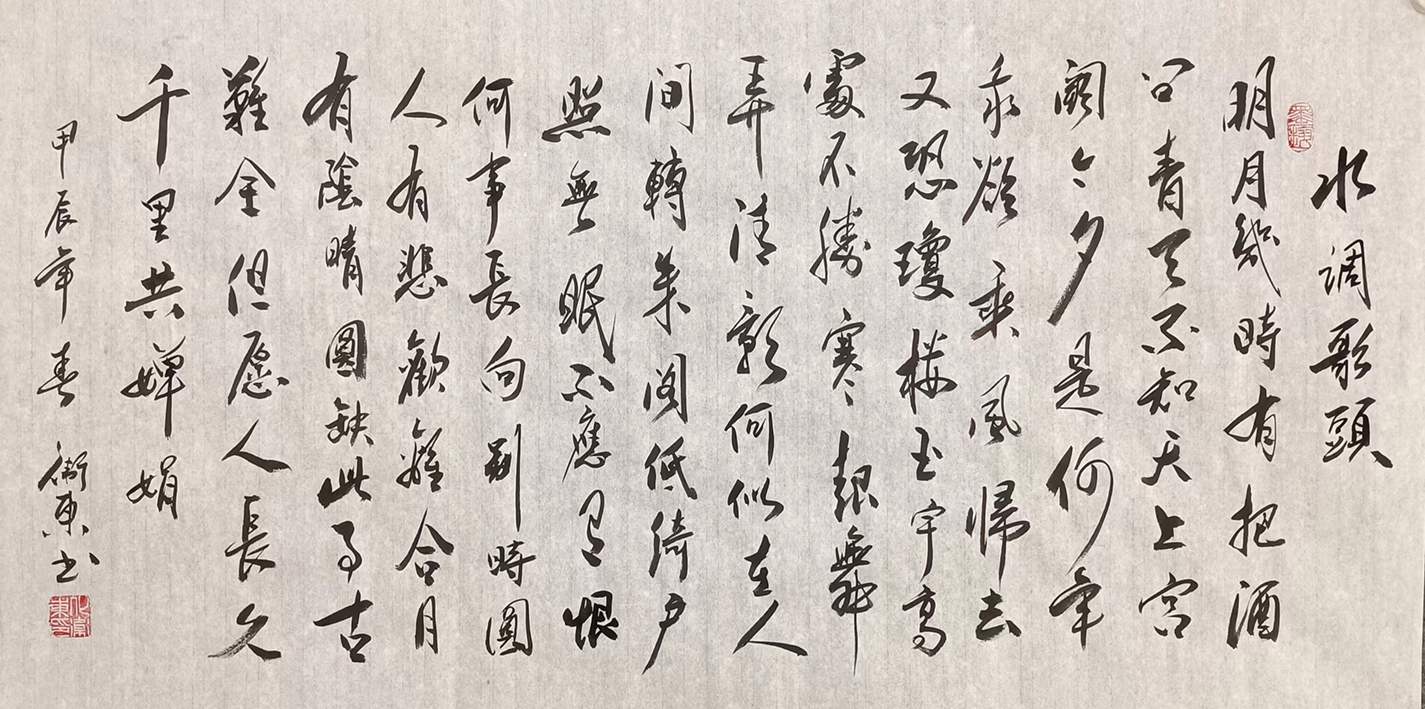 水調歌頭
明月幾時有把酒
问青天不知天上宫
阙今夕是何年
我欲乘风歸去
又恐瓊楼玉宇高
處不勝寒起舞
弄清影何似在人
间轉朱阁低绮户
照無眠不應有恨
何事長向别時圆
人有悲歡離合月
有陰晴圆缺此事古
難全但愿人長久
千里共婵娟
甲辰年春 衛東书